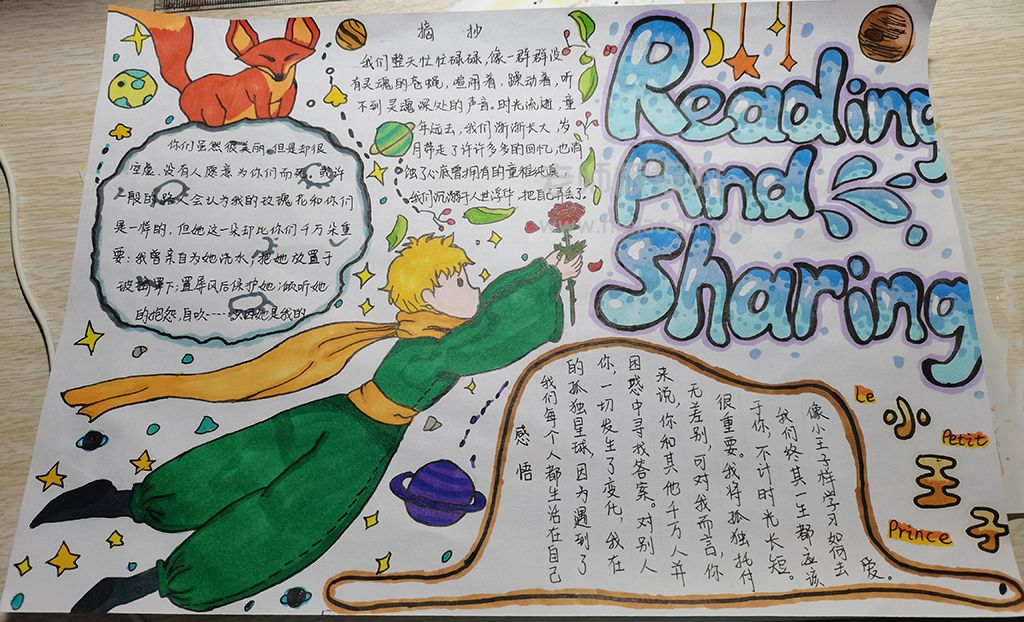 摘抄
我们整天忙忙碌碌,像一群群没
有灵魂的苍蝇,喧闹着,躁动着,听
不到灵魂深处的声音。时光流逝,童
年远去,我们渐渐长大,岁
月带走了许许多多的回忆,也消
蚀了心底曾拥有的童稚纯真
我们沉溺于人世浮华,把自己弄丢了.
你们虽然很美丽,但是却很
空虚,没有人愿意为你们而死,或许
一般的路人会认为我的玫瑰花和你们
是一样的,但她这一朵却比你们千万朵重
要;我曾亲自为她浇水;把她放置于
玻璃罩下;置屏风后保护她;倾听她
的抱怨,自吹……只因她是我的
Reading
And
Sharing
Le
小
Petit
王
Prince
子
感悟
我们每个人都生活在自己
的孤独星球,因为遇到了
你,一切发生了变化,我在
困惑中寻找答案。对别人
来说,你和其他千万人并
无差别,可对我而言,你
很重要。我将孤独托付
于你,不计时光长短。
我们终其一生都应该
像小王子样学习如何去
爱。